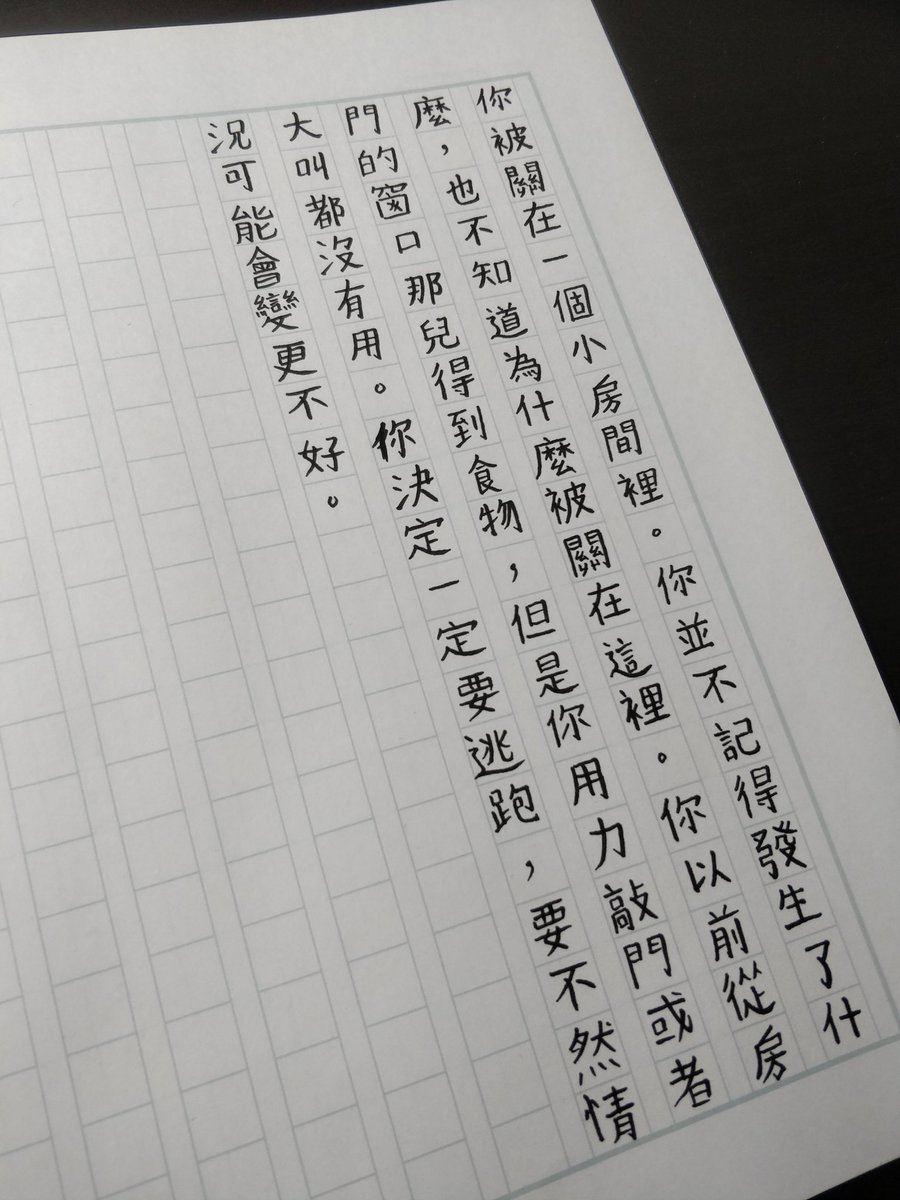 你被關在一個小房間裡。你並不記得發生了什
麼，也不知道為什麼被關在這裡。你以前從房
門的窗口那兒得到食物，但是你用力敲門或者
大叫都沒有用。你決定一定要逃跑，要不然情
況可能會變更不好。